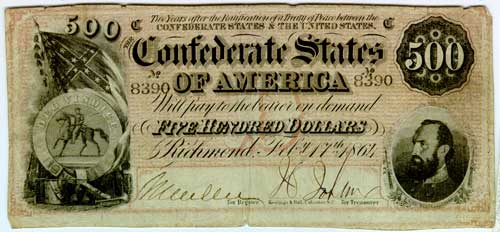 500
C
Two Years after the Ratification of a Treaty of Peace between the
C
CONFEDERATE STATES & THE UNITED STATES.
THE
Confederate States
500
No
No
8390
OF AMERICA
8390
Will pay to the bearer on demand
FIVE HUNDRED DOLLARS
Richmond, Feby. 17th. 1864
for Register
Keatinge & Ball, Columbia, S.C.
for Treasurer